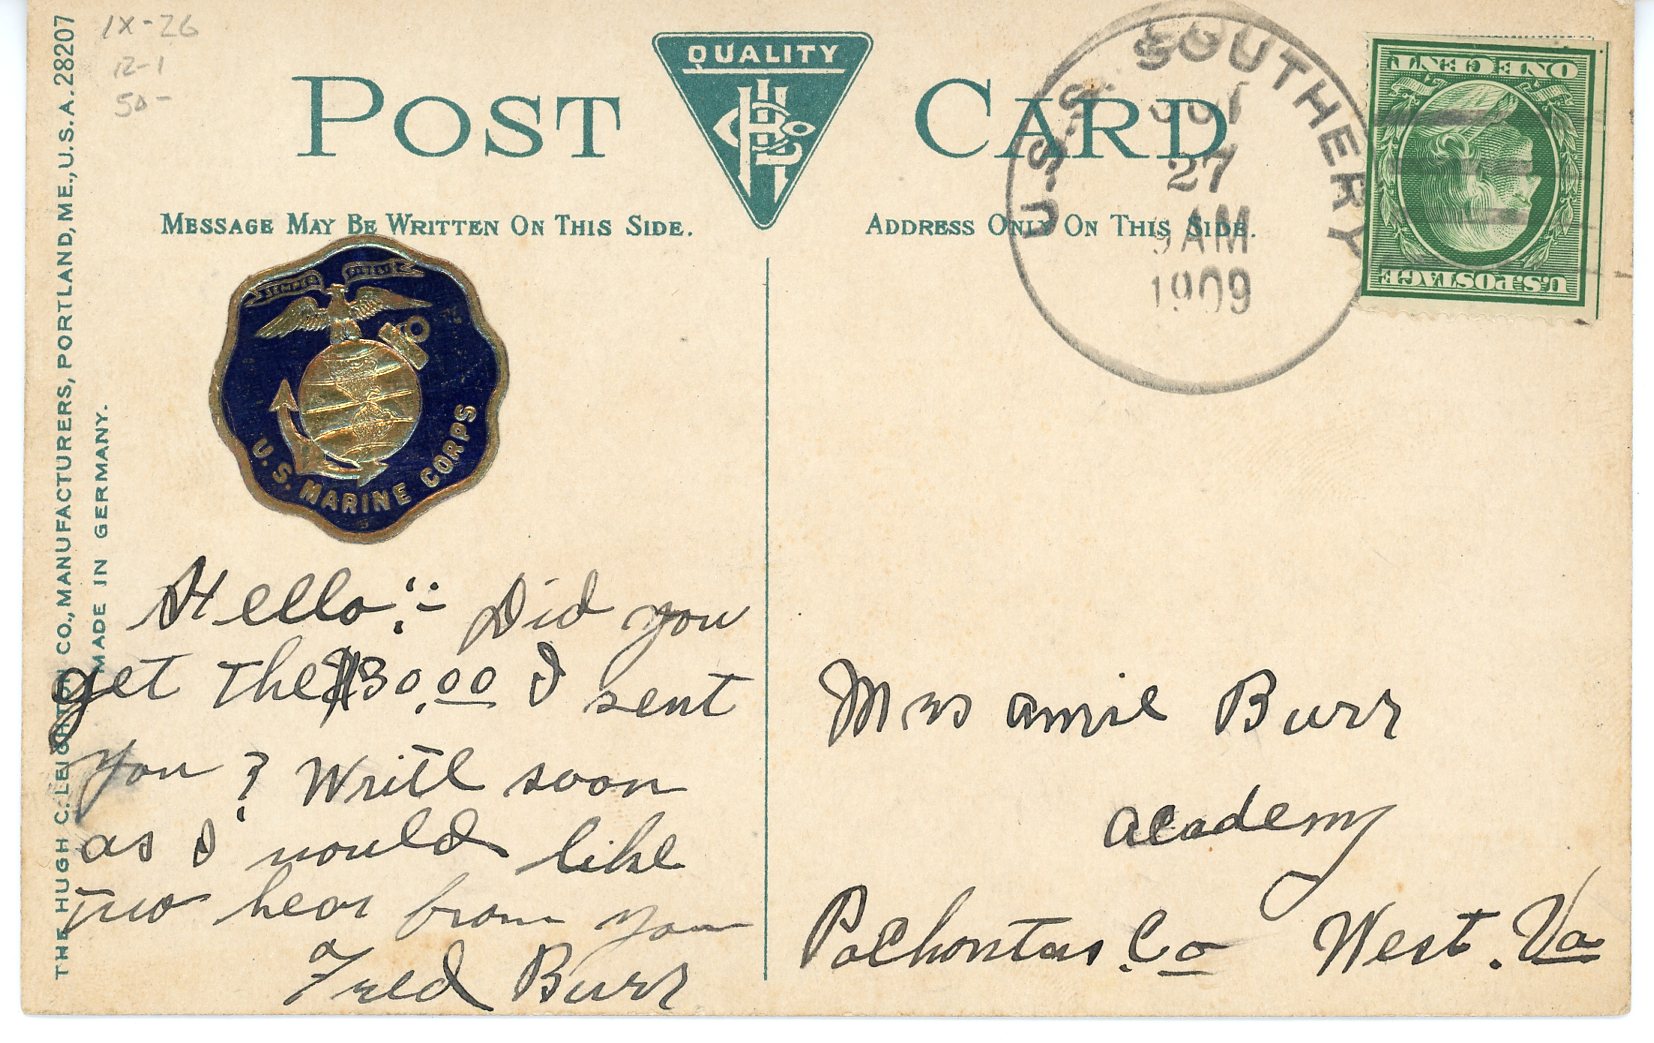 IX-26
12-1
50-
POST CARD
QUALITY
MESSAGE MAY BE WRITTEN ON THIS SIDE.
ADDRESS ONLY ON THIS SIDE.
U.S.S. SOUTHERY
OCT
27
AM
1909
ONE CENT
U.S. POSTAGE
SEMPER
U.S. MARINE CORPS
THE HUGH C. LEIGHTON CO., MANUFACTURERS, PORTLAND, ME., U.S.A. 28207
MADE IN GERMANY.
Hello :- Did you
get the $30.00 I sent
you ? Write soon
as I would like
two hear from you
Fred Burr
Mrs annie Burr
academy
Pochontas Co West. Va